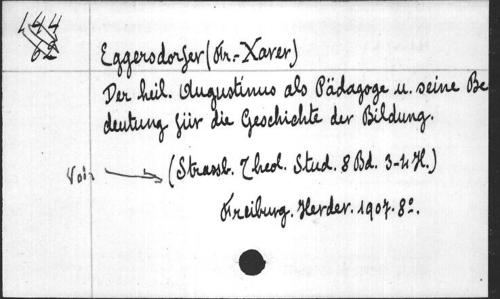 Eggersdorfer (Fr.-Xaver)
Der heil. Augustinus als Pädagoge u. seine Be
deutung für die Geschichte der Bildung.
Voir (Strassb. Theol. Stud. 8 Bd. 3-4 H.)
Freiburg. Herder. 1907. 8º.